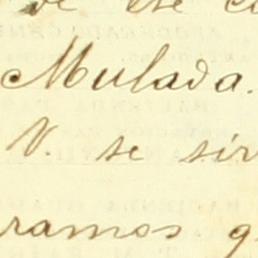 de ese
Mulada.
V. se sir
ramos q